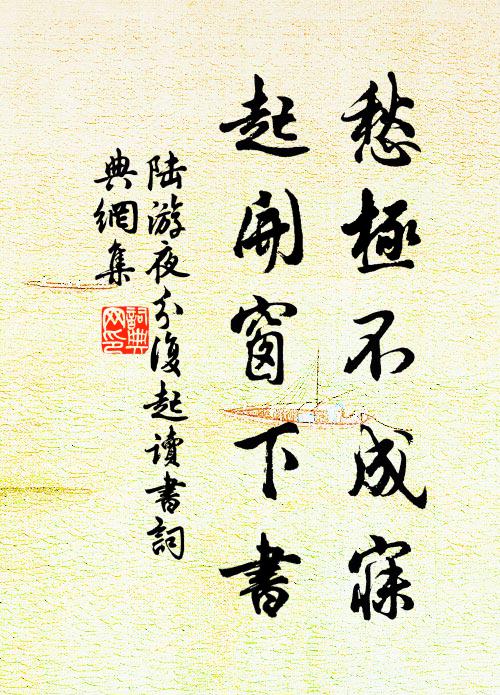 愁極不成寐
起開窗下書
陸游夜分復起讀書詞
典網集
詞典
网印